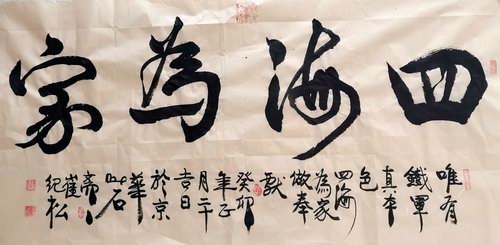 四海為家
唯有
鐵軍
真本
色
四海
為家
做奉
獻
癸卯
年正
月二十
吉日
於京
華
石
齋
崔松
紀